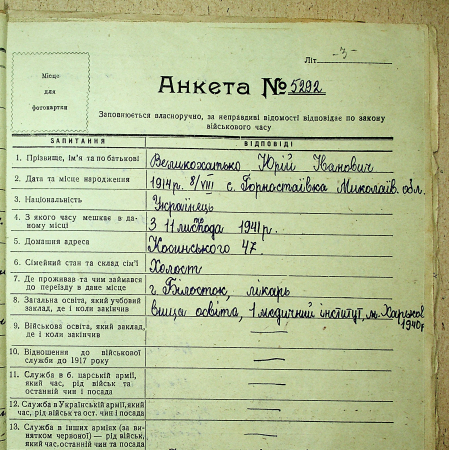 Літ. -3-
Місце
для
фотокартки
Анкета № 5292
Заповнюється власноручно, за неправдиві відомості відповідає по закону
військового часу
ЗАПИТАННЯ ВІДПОВІДІ
1. Прізвище, ім'я та по батькові Великохатько Юрій Іванович
2. Дата та місце народження 1914 р. 8/VIII с. Горностаївка Миколаїв. обл.
3. Національність Українець
4. З якого часу мешкає в да-
ному місці З 11 листопада 1941 р.
5. Домашня адреса Косинського 47
6. Сімейний стан та склад сім'ї Холост
7. Де проживав та чим займався
до переїзду в дане місце г. Білосток, лікарь
8. Загальна освіта, який учбовий
заклад, де і коли закінчив вища освіта, 1 медичний інститут, м. Харьков
1940 р
9. Військова освіта, який заклад,
де і коли закінчив —
10. Відношення до військової
служби до 1917 року —
11. Служба в б. царській армії,
який час, рід військ та
останній чин і посада —
12. Служба в Українській армії, який
час, рід військ та ост. чин і посада —
13. Служба в інших арміях (за ви-
нятком червоної) — рід військ,
який час, останній чин та посада —